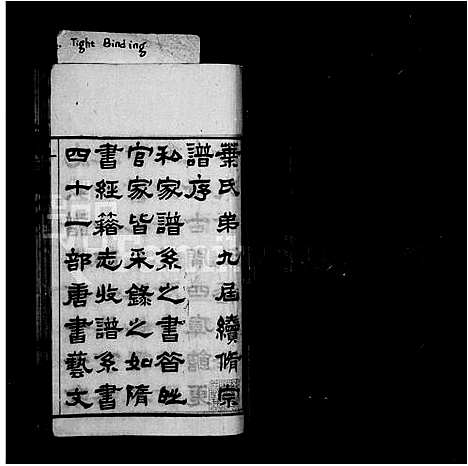 Tight Binding
葉氏弟九屆續脩宗
譜序
私家譜系之書咎甡
官家皆采錄之如隋
書經籍志收譜系書
四十一部唐書藝文